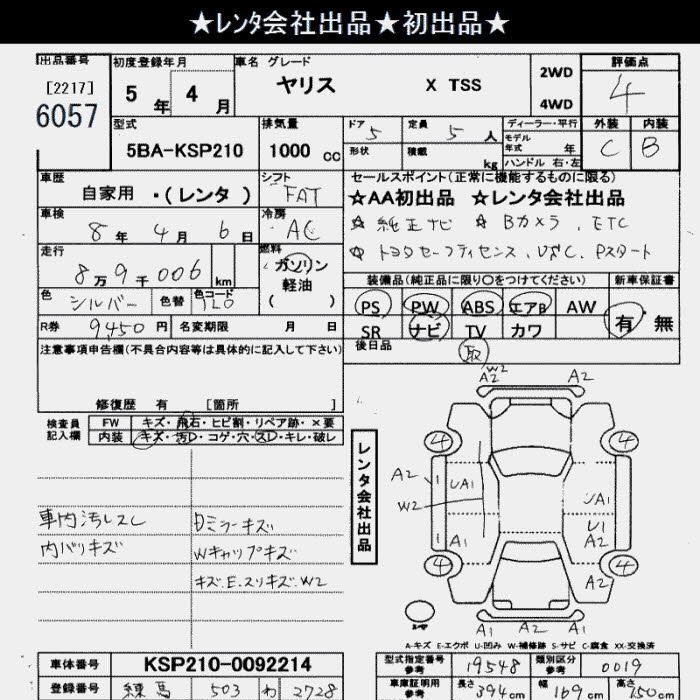 ★レンタ会社出品★初出品★
出品番号 初度登録年月 車名 グレード 評価点
[2217] 5年 4月 ヤリス X TSS 2WD 4WD 4
6057
型式 排気量 ドア 5 定員 5人 ディーラー・平行 外装 内装
5BA-KSP210 1000cc 形状 積載 kg モデル年式 年 C B
ハンドル 右・左
車歴 シフト セールスポイント(正常に機能するものに限る)
自家用・(レンタ) FAT ☆AA初出品 ☆レンタ会社出品
車検 冷房 ☆ 純正ナビ ☆ Bカメラ、ETC
8年 4月 6日 AC ☆ トヨタセーフティセンス、VSC、Pスタート
走行 燃料
8万9千006km ガソリン 軽油 ( )
装備品(純正品に限り〇をつけてください) 新車保証書
色 シルバー 色替 色コード 1E0 PS PW ABS エアB AW 有・無
R券 9450円 名変期限 月 日 SR ナビ TV カワ
注意事項申告欄(不具合内容等は具体的に記入して下さい) 後日品 取
修復歴 有 [箇所 ]
検査員記入欄 FW キズ・飛石・ヒビ割・リペア跡・×要
内装 キズ・汚D・コゲ・穴・スレ・キレ・破レ
レンタ会社出品
車内汚レスレ Dミラーキズ
内バリキズ Wキャップキズ
キズ.E.スリキズ.W2
W2
A2 A2
4 4
A2 UA1 UA1
W2
A1 U1
A2
4 4
A2
A1 A1 A2
A-キズ E-エクボ U-凹み W-補修跡 S-サビ C-腐食 XX-交換済
車体番号 KSP210-0092214 型式指定番号参考 19548 類別区分参考 0019
登録番号 練馬 503 わ 2728 車庫証明用参考 長さ 394cm 幅 169cm 高さ 150cm